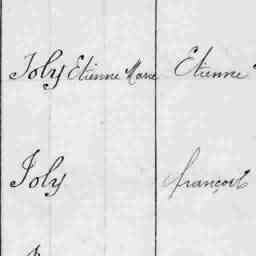 Joly Etienne Marie Etienne
Joly françois